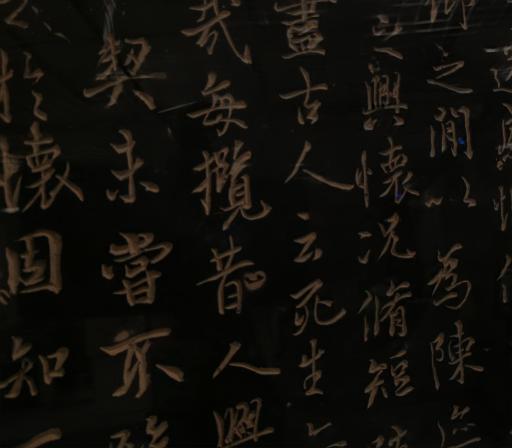 仰之閒以為陳迹
之興懷況脩短隨
盡古人云死生亦
哉每攬昔人興
契未嘗不臨
於懷固知一